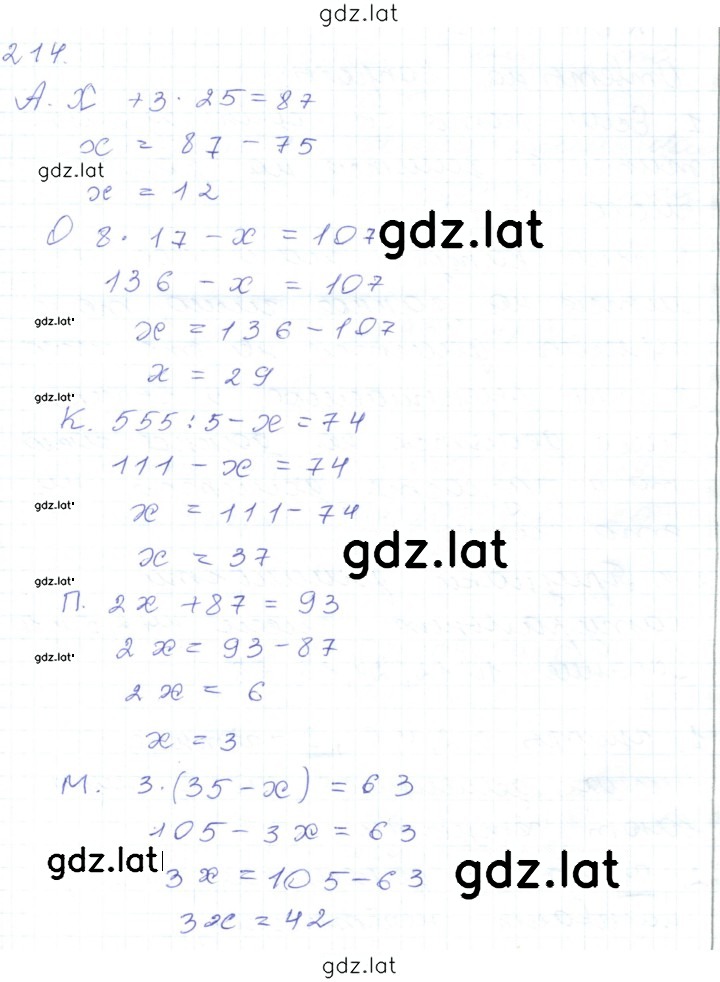 gdz.lat
214.
А. х + 3 · 25 = 87
х = 87 - 75
gdz.lat
х = 12
О 8 · 17 - х = 107
gdz.lat
136 - х = 107
gdz.lat
х = 136 - 107
х = 29
gdz.lat
К. 555 : 5 - х = 74
111 - х = 74
gdz.lat
х = 111 - 74
gdz.lat
х = 37
gdz.lat
П. 2х + 87 = 93
2х = 93 - 87
gdz.lat
2х = 6
х = 3
М. 3 · (35 - х) = 63
105 - 3х = 63
gdz.lat
3х = 105 - 63
gdz.lat
3х = 42
gdz.lat